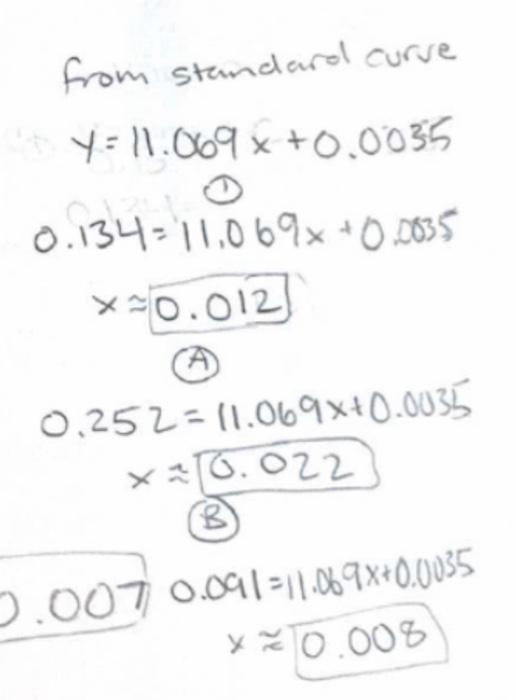 from standard curve
y=11.069x+0.0035
①
0.134=11.069x+0.0035
x≈0.012
Ⓐ
0.252=11.069x+0.0035
x≈0.022
Ⓑ
0.007 0.091=11.069x+0.0035
x≈0.008